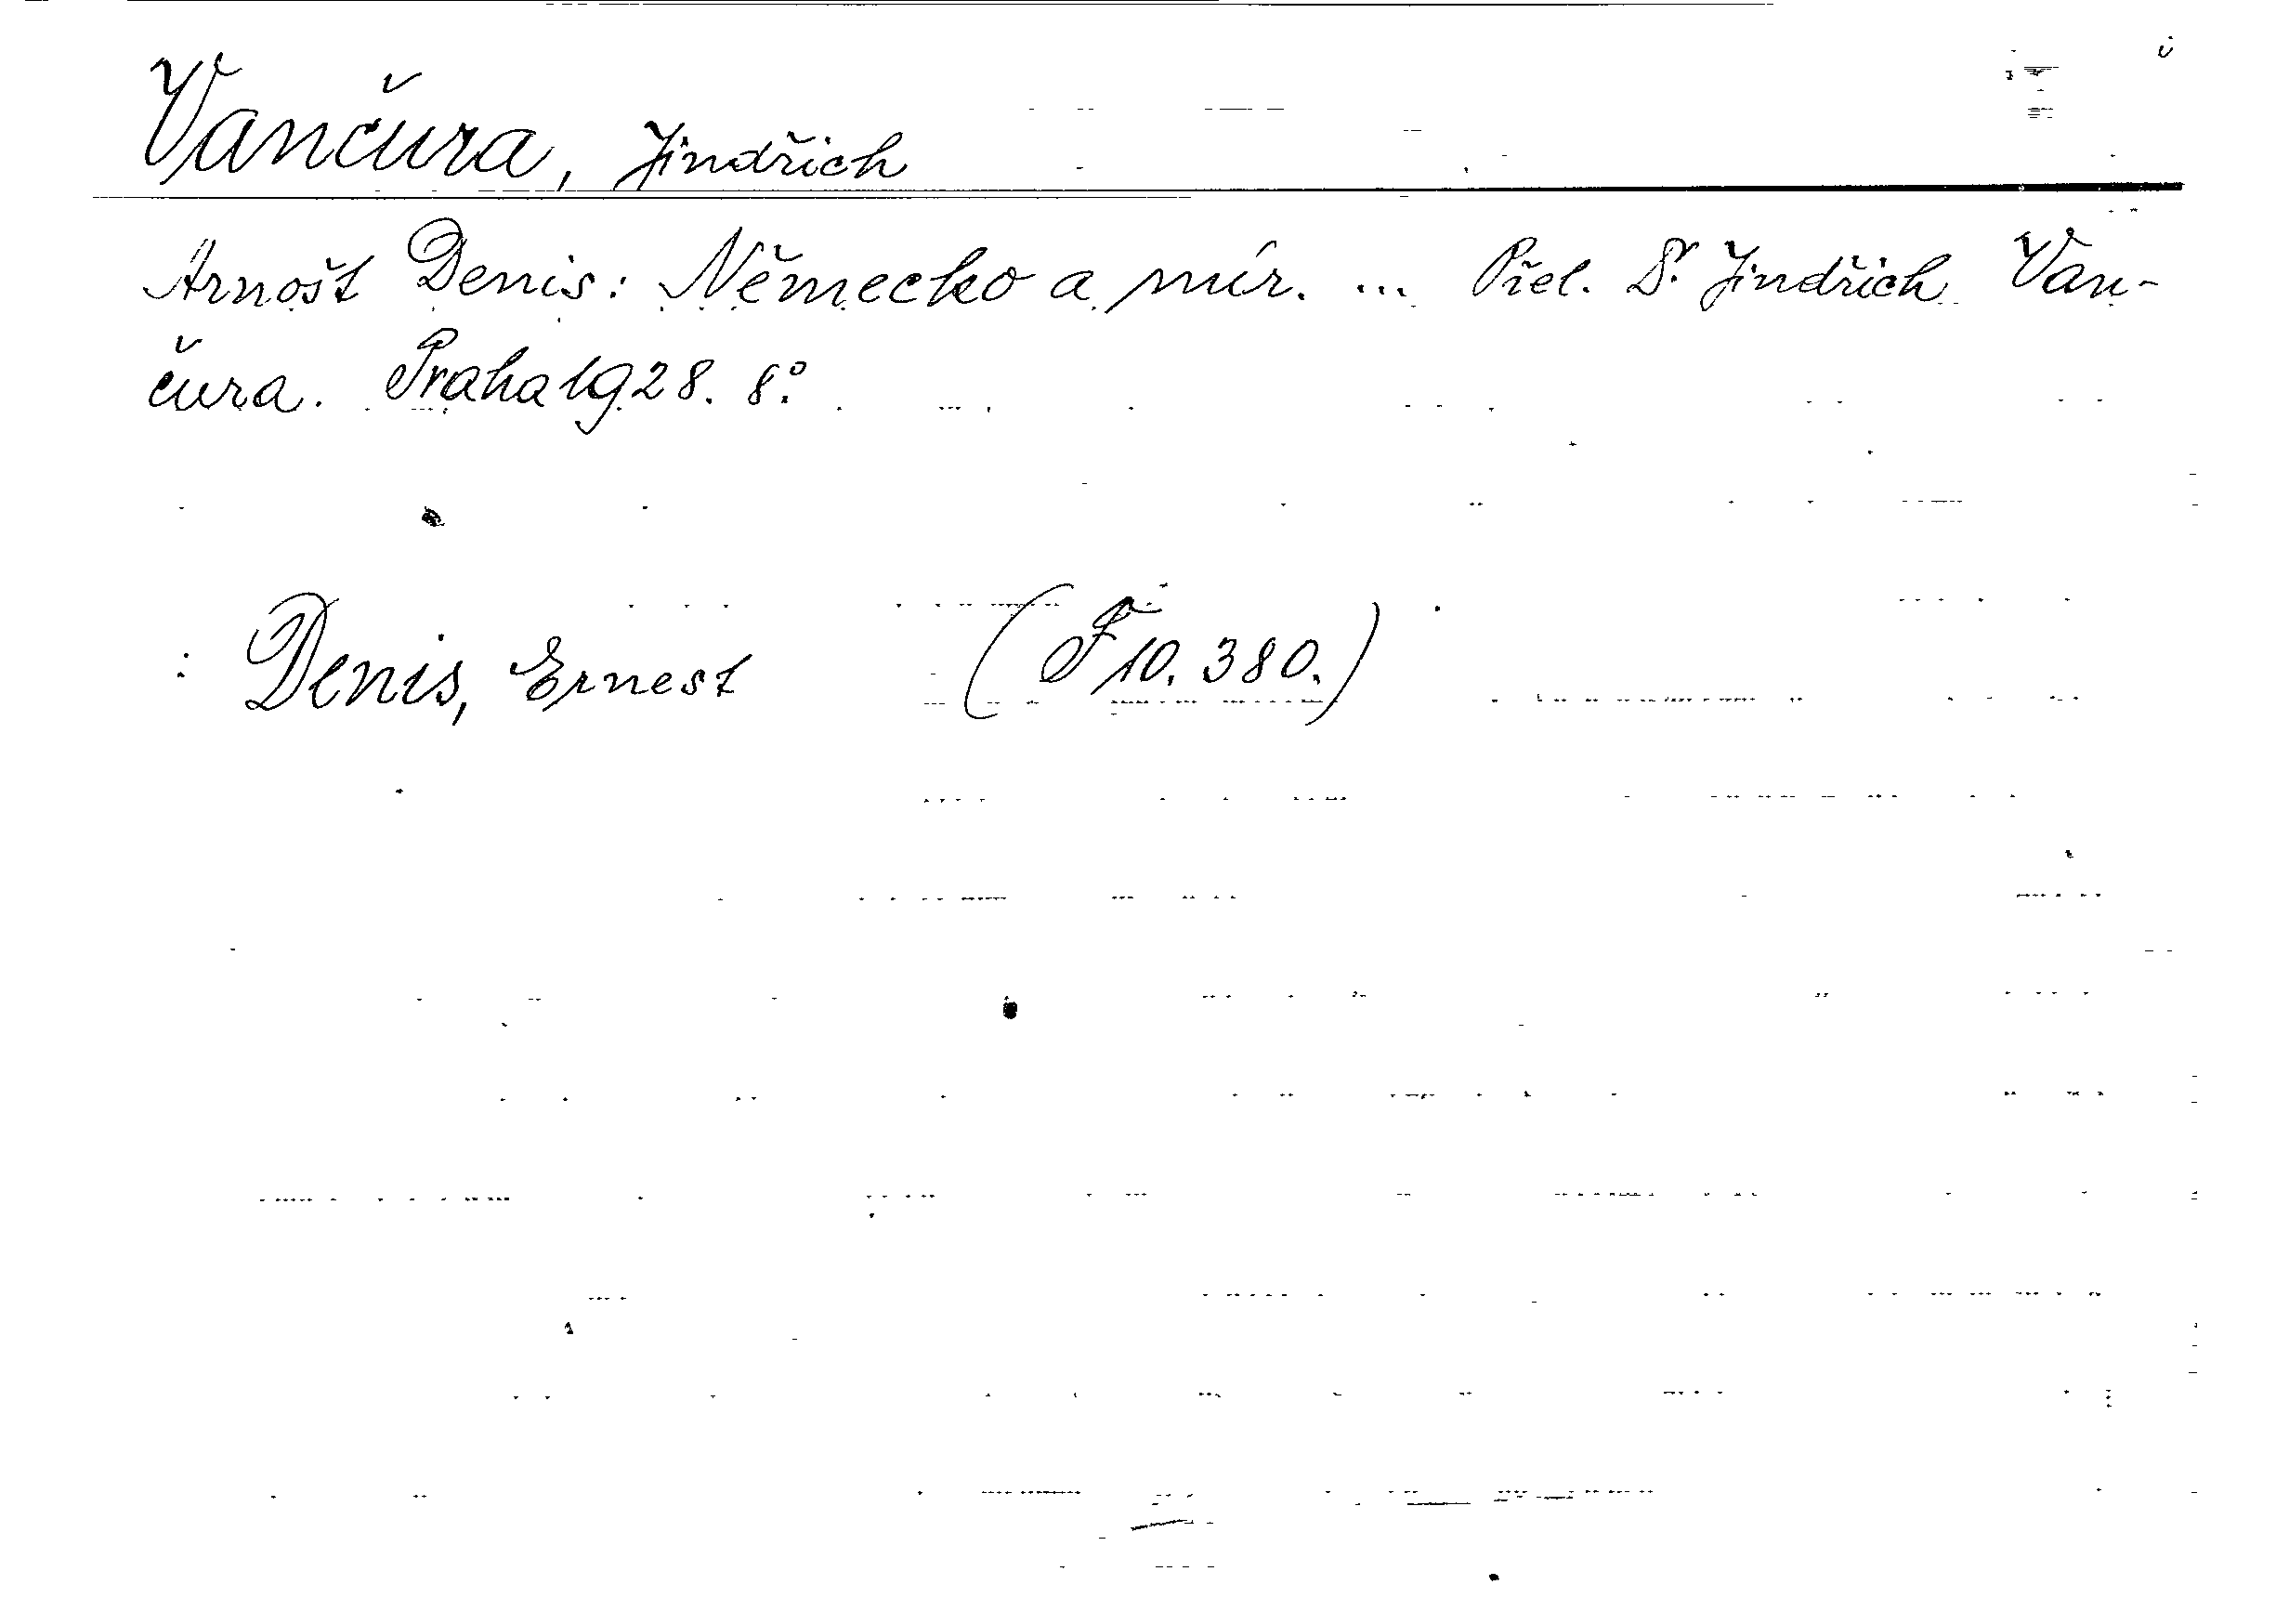 Vančura, Jindřich
Arnošt Denis: Německo a mír. ... Přel. Dr. Jindřich Van-
čura. Praha 1928. 8°.
: Denis, Ernest (F 10.380.)